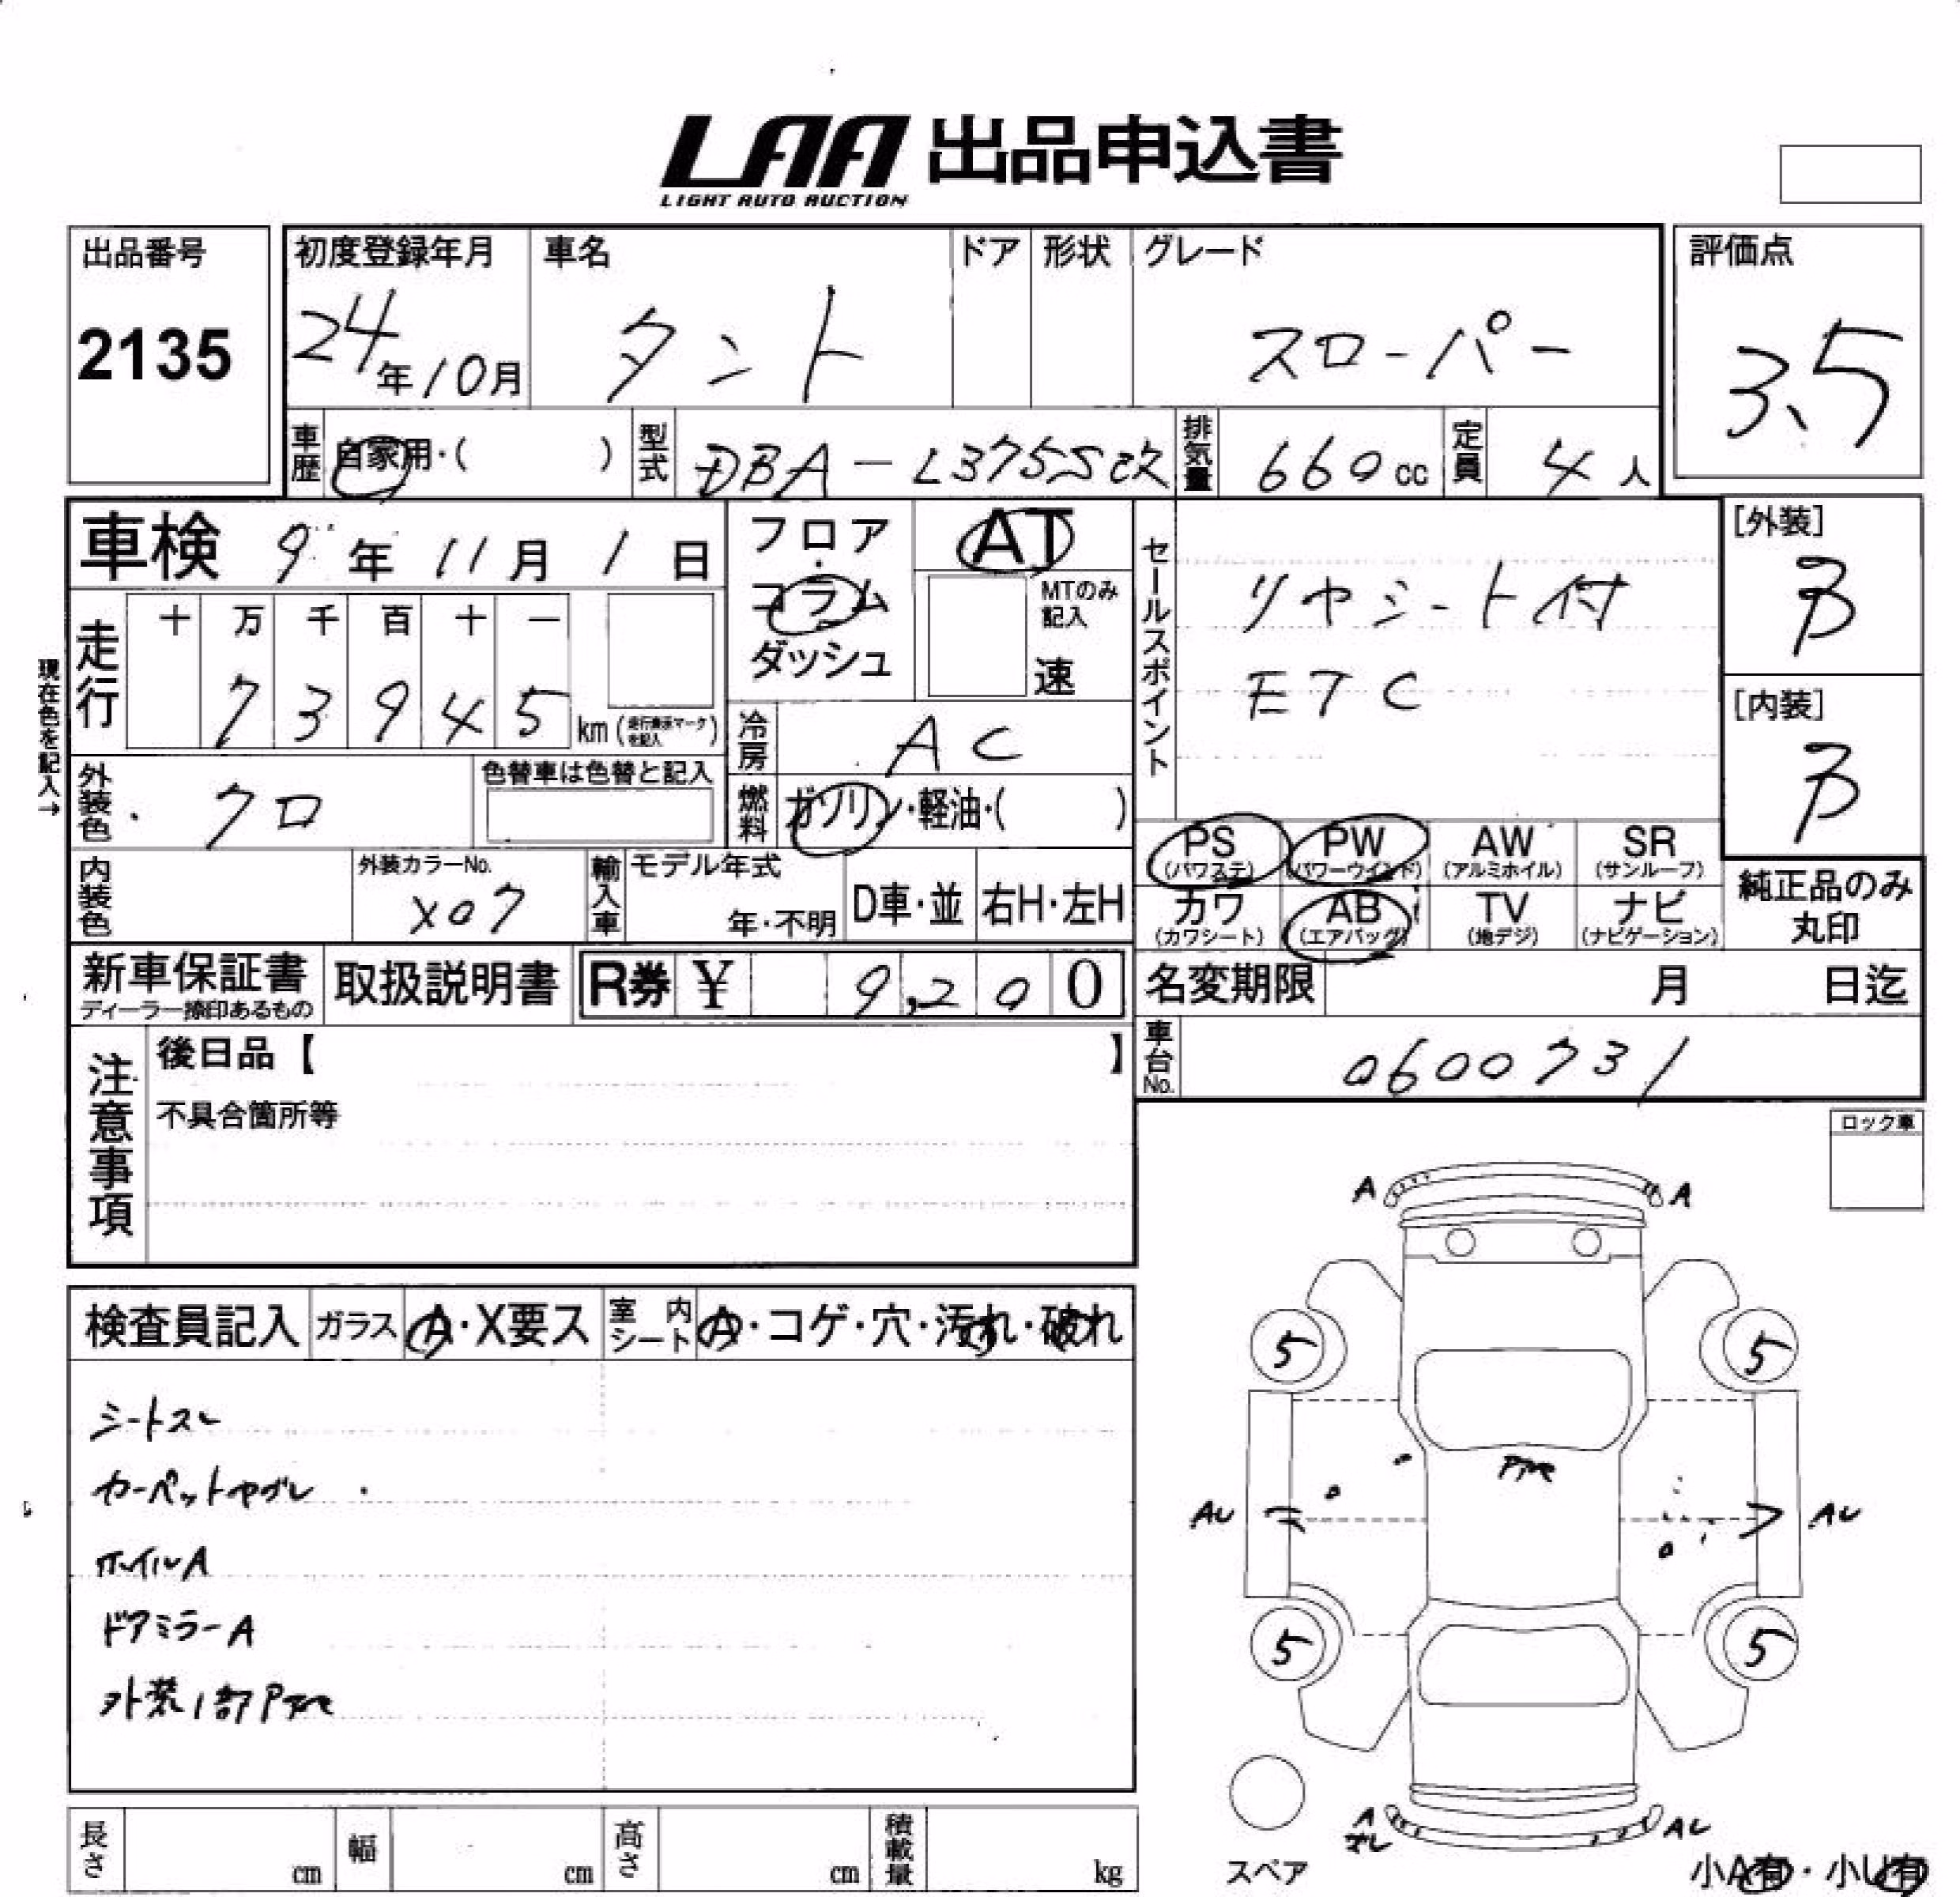 LAA 出品申込書
LIGHT AUTO AUCTION
出品番号
2135
初度登録年月
24年10月
車名
タント
ドア
形状
グレード
スローパー
評価点
3.5
車歴
自家用・( )
型式
DBA-L375S改
排気量
660cc
定員
4人
車検 9年11月1日
フロア・コラム
ダッシュ
AT
MTのみ記入
速
セールスポイント
リヤシート付
ETC
[外装]
B
[内装]
B
現在色を記入→
走行
十 万 千 百 十 一
7 3 9 4 5
km(走行表示マークを記入)
冷房
AC
外装色
クロ
色替車は色替と記入
燃料
ガソリン・軽油・( )
PS
(パワステ)
PW
(パワーウインド)
AW
(アルミホイル)
SR
(サンルーフ)
カワ
(カワシート)
AB
(エアバッグ)
TV
(地デジ)
ナビ
(ナビゲーション)
純正品のみ
丸印
内装色
外装カラーNo.
X07
輸入車
モデル年式
年・不明
D車・並
右H・左H
新車保証書
ディーラー捺印あるもの
取扱説明書
R券 ¥ 9,200
名変期限 月 日迄
車台No.
0600731
注意事項
後日品【 】
不具合箇所等
ロック車
検査員記入
ガラス
A・X要ス
室内シート
A・コゲ・穴・汚れ・破れ
シートスレ
カーペットヤブレ
ホイルA
ドアミラーA
外装1部
A
A
5
5
AU
AU
5
5
A
AU
スペア
小A有・小U有
長さ
cm
幅
cm
高さ
cm
積載量
kg